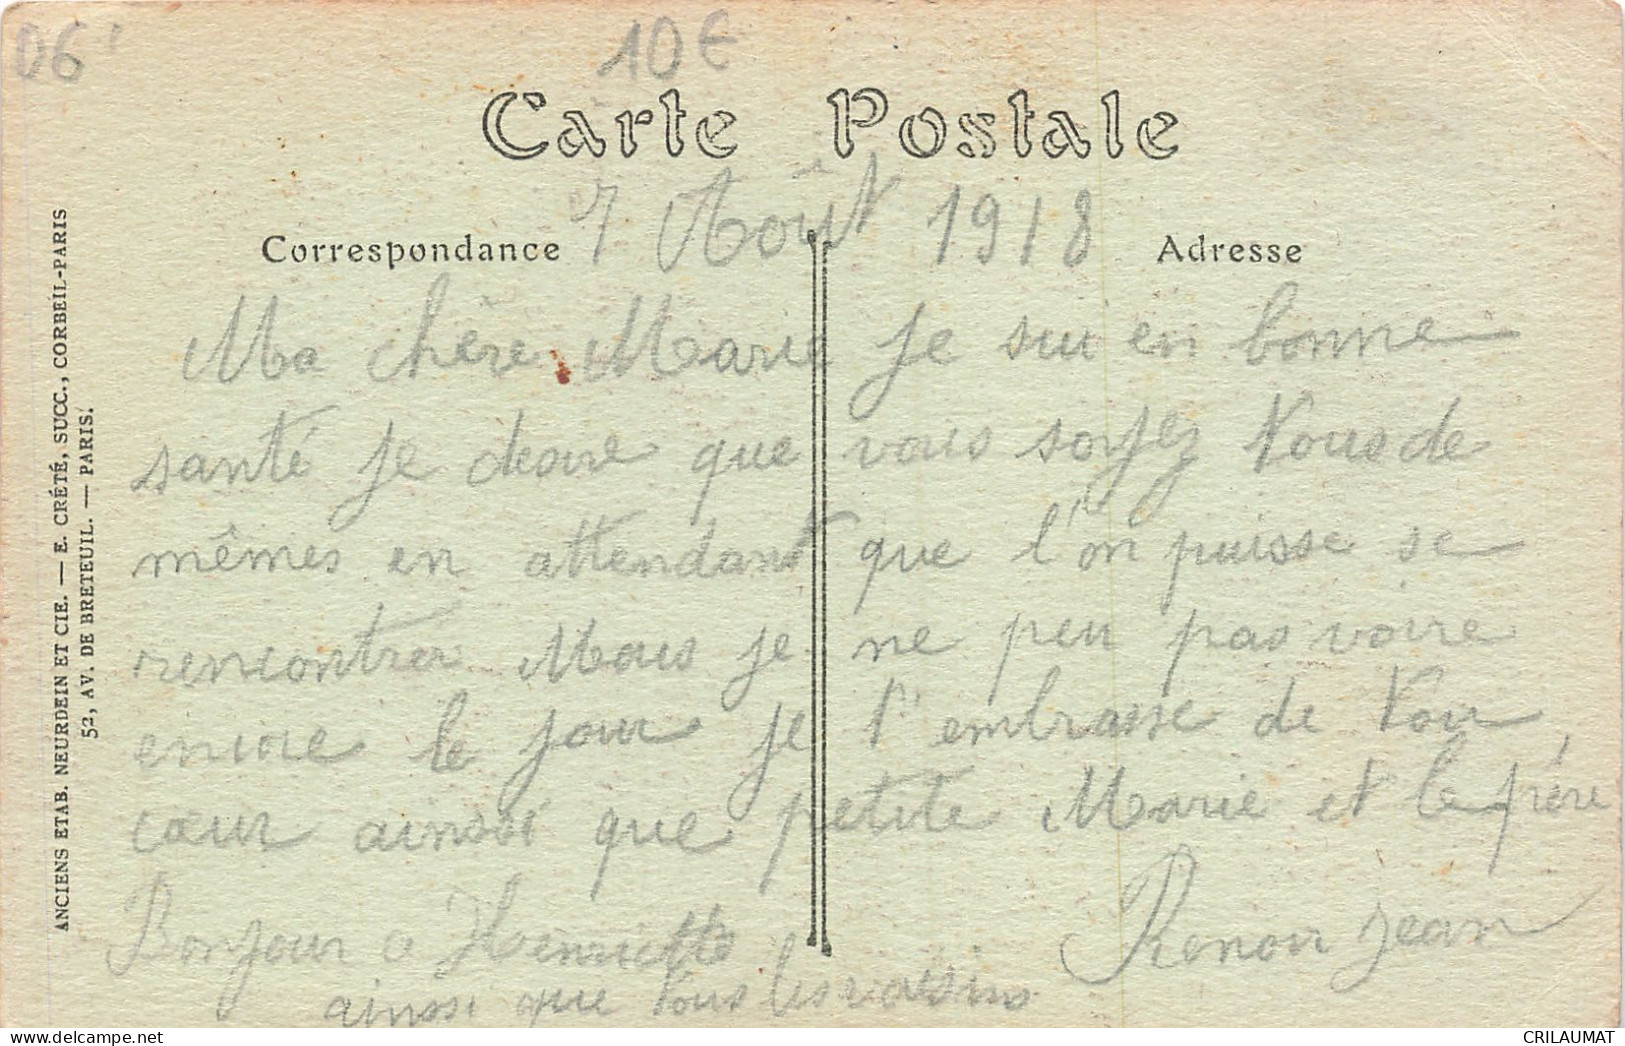 06'
10€
Carte Postale
7 Août 1918
Correspondance
Adresse
Ma chère Marie je sui en bonne
santé je desire que vous soyez tous de
mêmes en attendant que l'on puisse se
rencontrer Mais je ne peu pas voire
encore le jour je t'embrasse de ton
cœur ainssi que petite Marie et le frère
Bonjour a Henriette
Renoir jean
ainssi que tous les voissins
ANCIENS ETAB. NEURDEIN ET CIE. — E. CRÉTÉ, SUCC., CORBEIL-PARIS
52, AV. DE BRETEUIL. — PARIS.
delcampe.net
CRILAUMAT